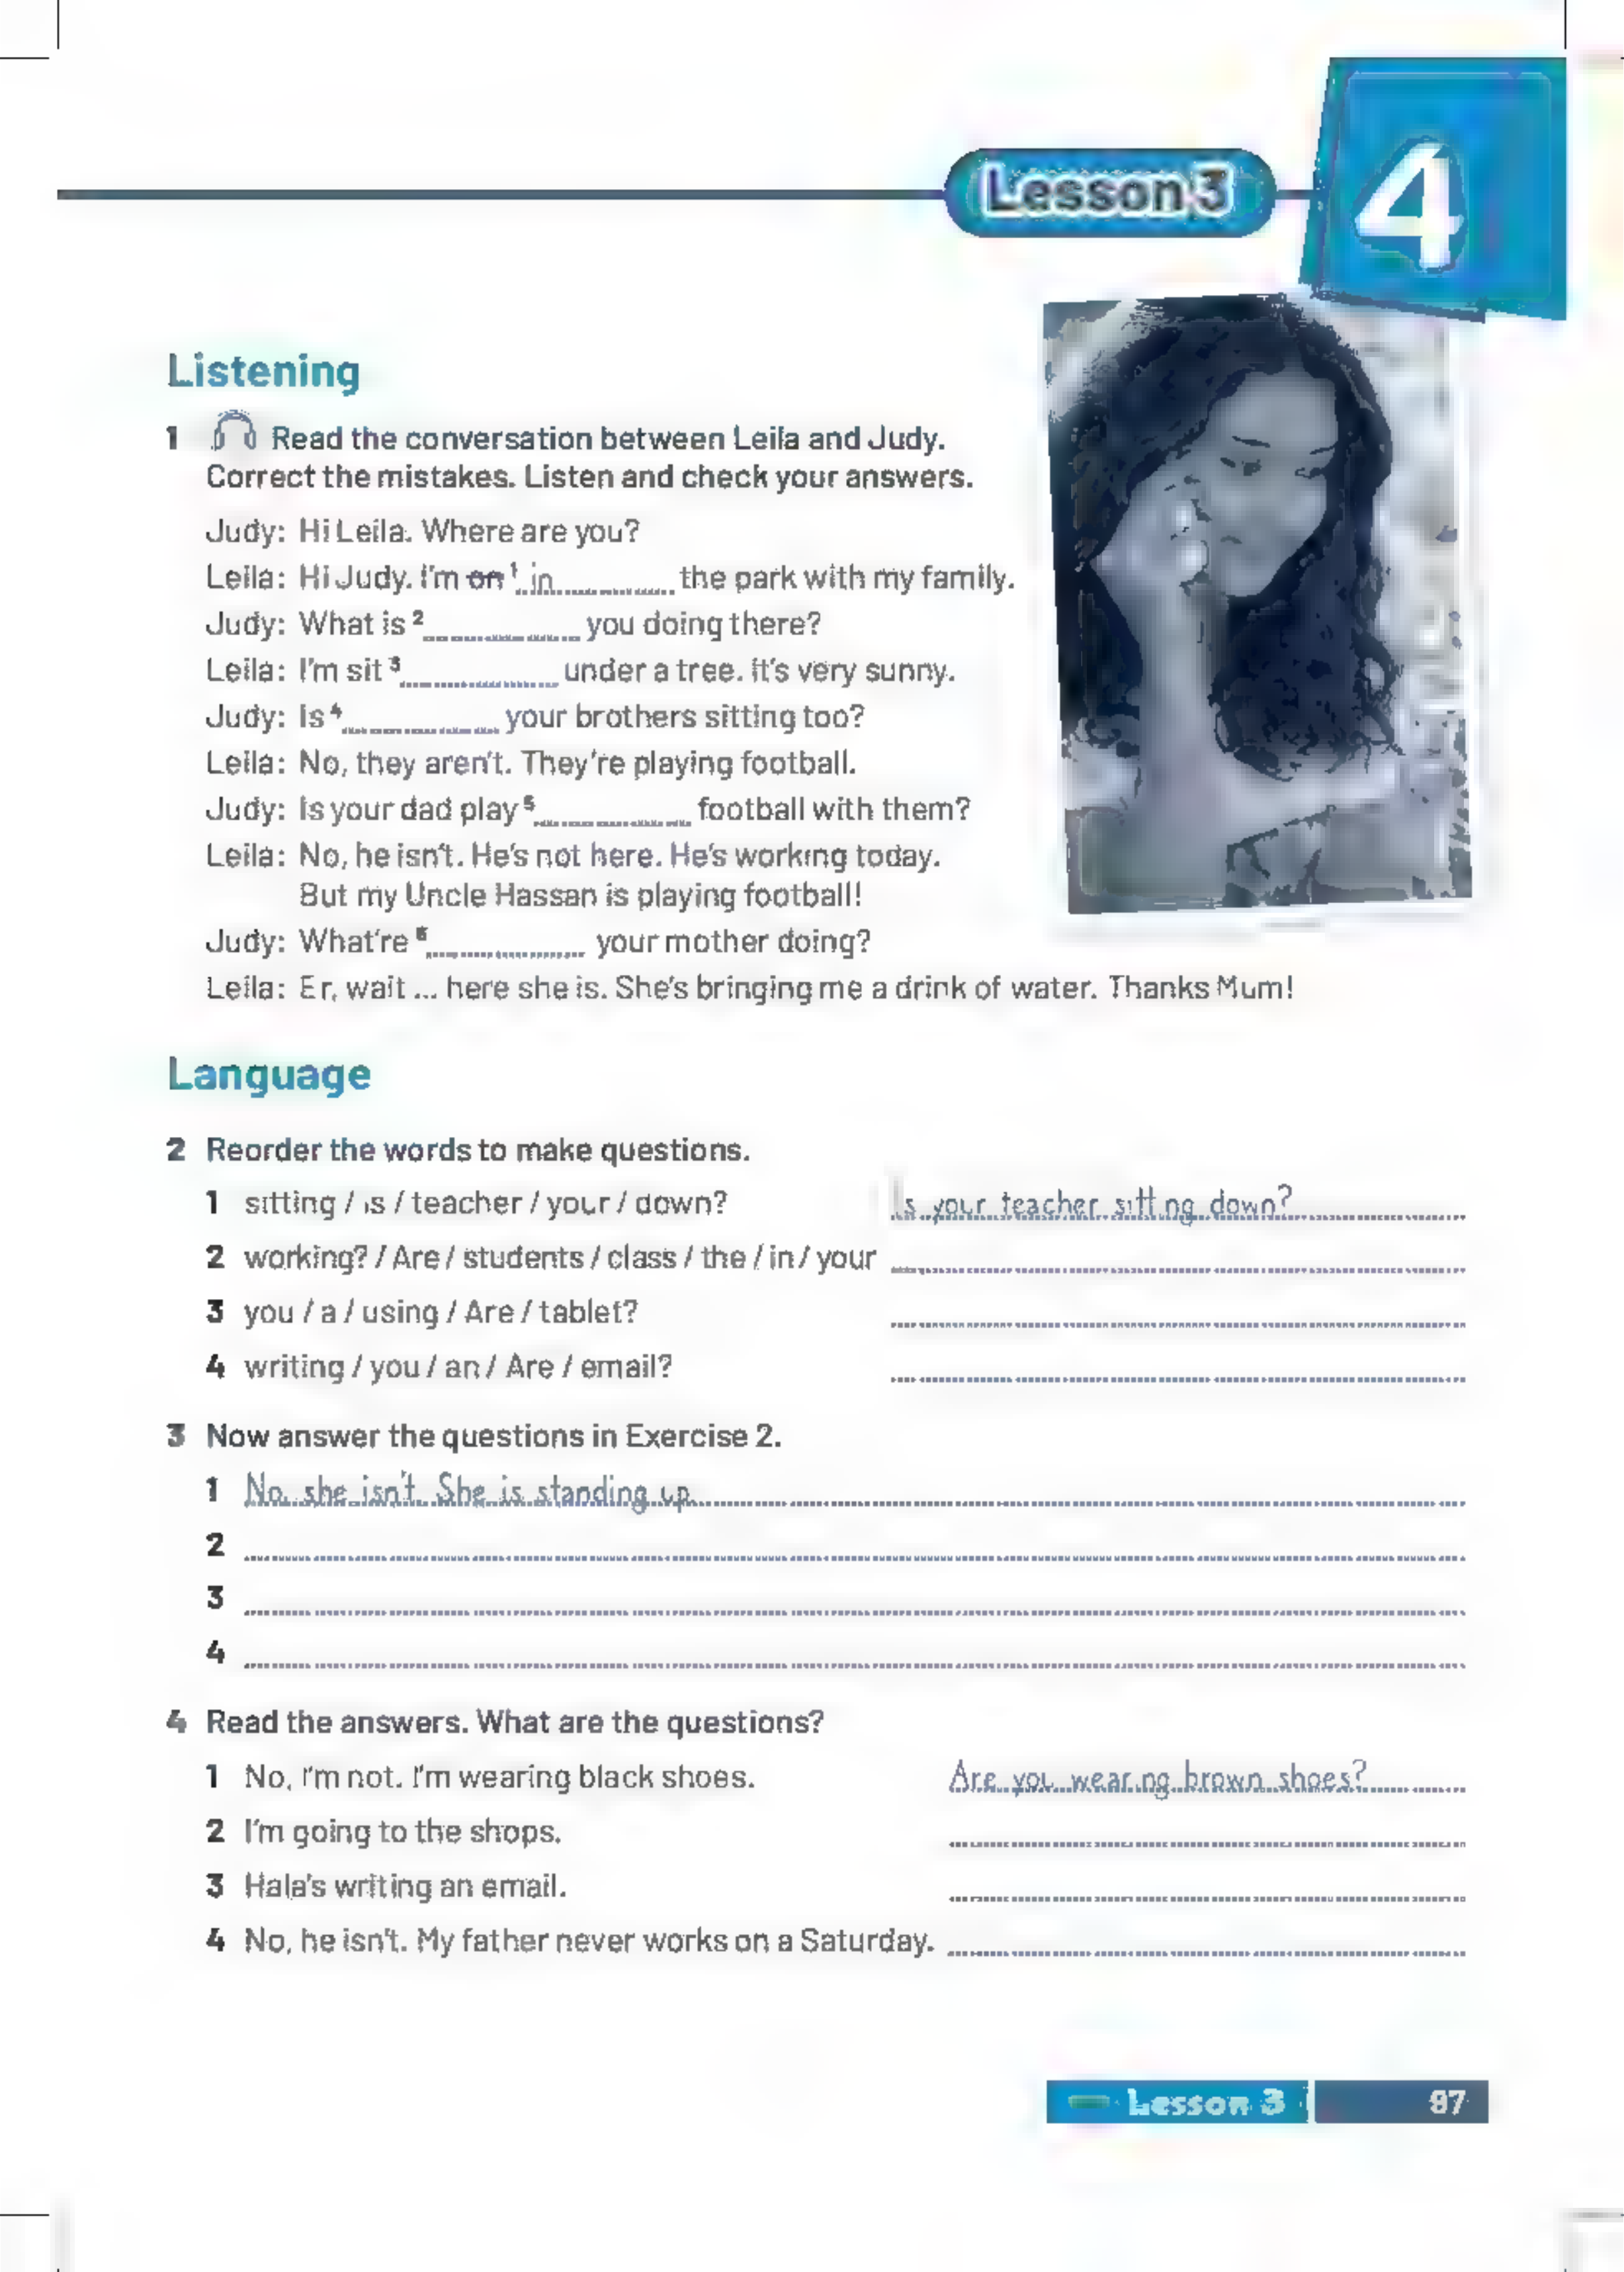 Lesson 3
4
Listening
1 Read the conversation between Leila and Judy.
Correct the mistakes. Listen and check your answers.
Judy: Hi Leila. Where are you?
Leila: Hi Judy. I'm on ¹ in the park with my family.
Judy: What is ² you doing there?
Leila: I'm sit ³ under a tree. It's very sunny.
Judy: Is ⁴ your brothers sitting too?
Leila: No, they aren't. They're playing football.
Judy: Is your dad play ⁵ football with them?
Leila: No, he isn't. He's not here. He's working today.
But my Uncle Hassan is playing football!
Judy: What're ⁶ your mother doing?
Leila: Er, wait ... here she is. She's bringing me a drink of water. Thanks Mum!
Language
2 Reorder the words to make questions.
1 sitting / is / teacher / your / down? Is your teacher sitting down?
2 working? / Are / students / class / the / in / your
3 you / a / using / Are / tablet?
4 writing / you / an / Are / email?
3 Now answer the questions in Exercise 2.
1 No, she isn't. She is standing up.
2
3
4
4 Read the answers. What are the questions?
1 No, I'm not. I'm wearing black shoes. Are you wearing brown shoes?
2 I'm going to the shops.
3 Hala's writing an email.
4 No, he isn't. My father never works on a Saturday.
Lesson 3 97